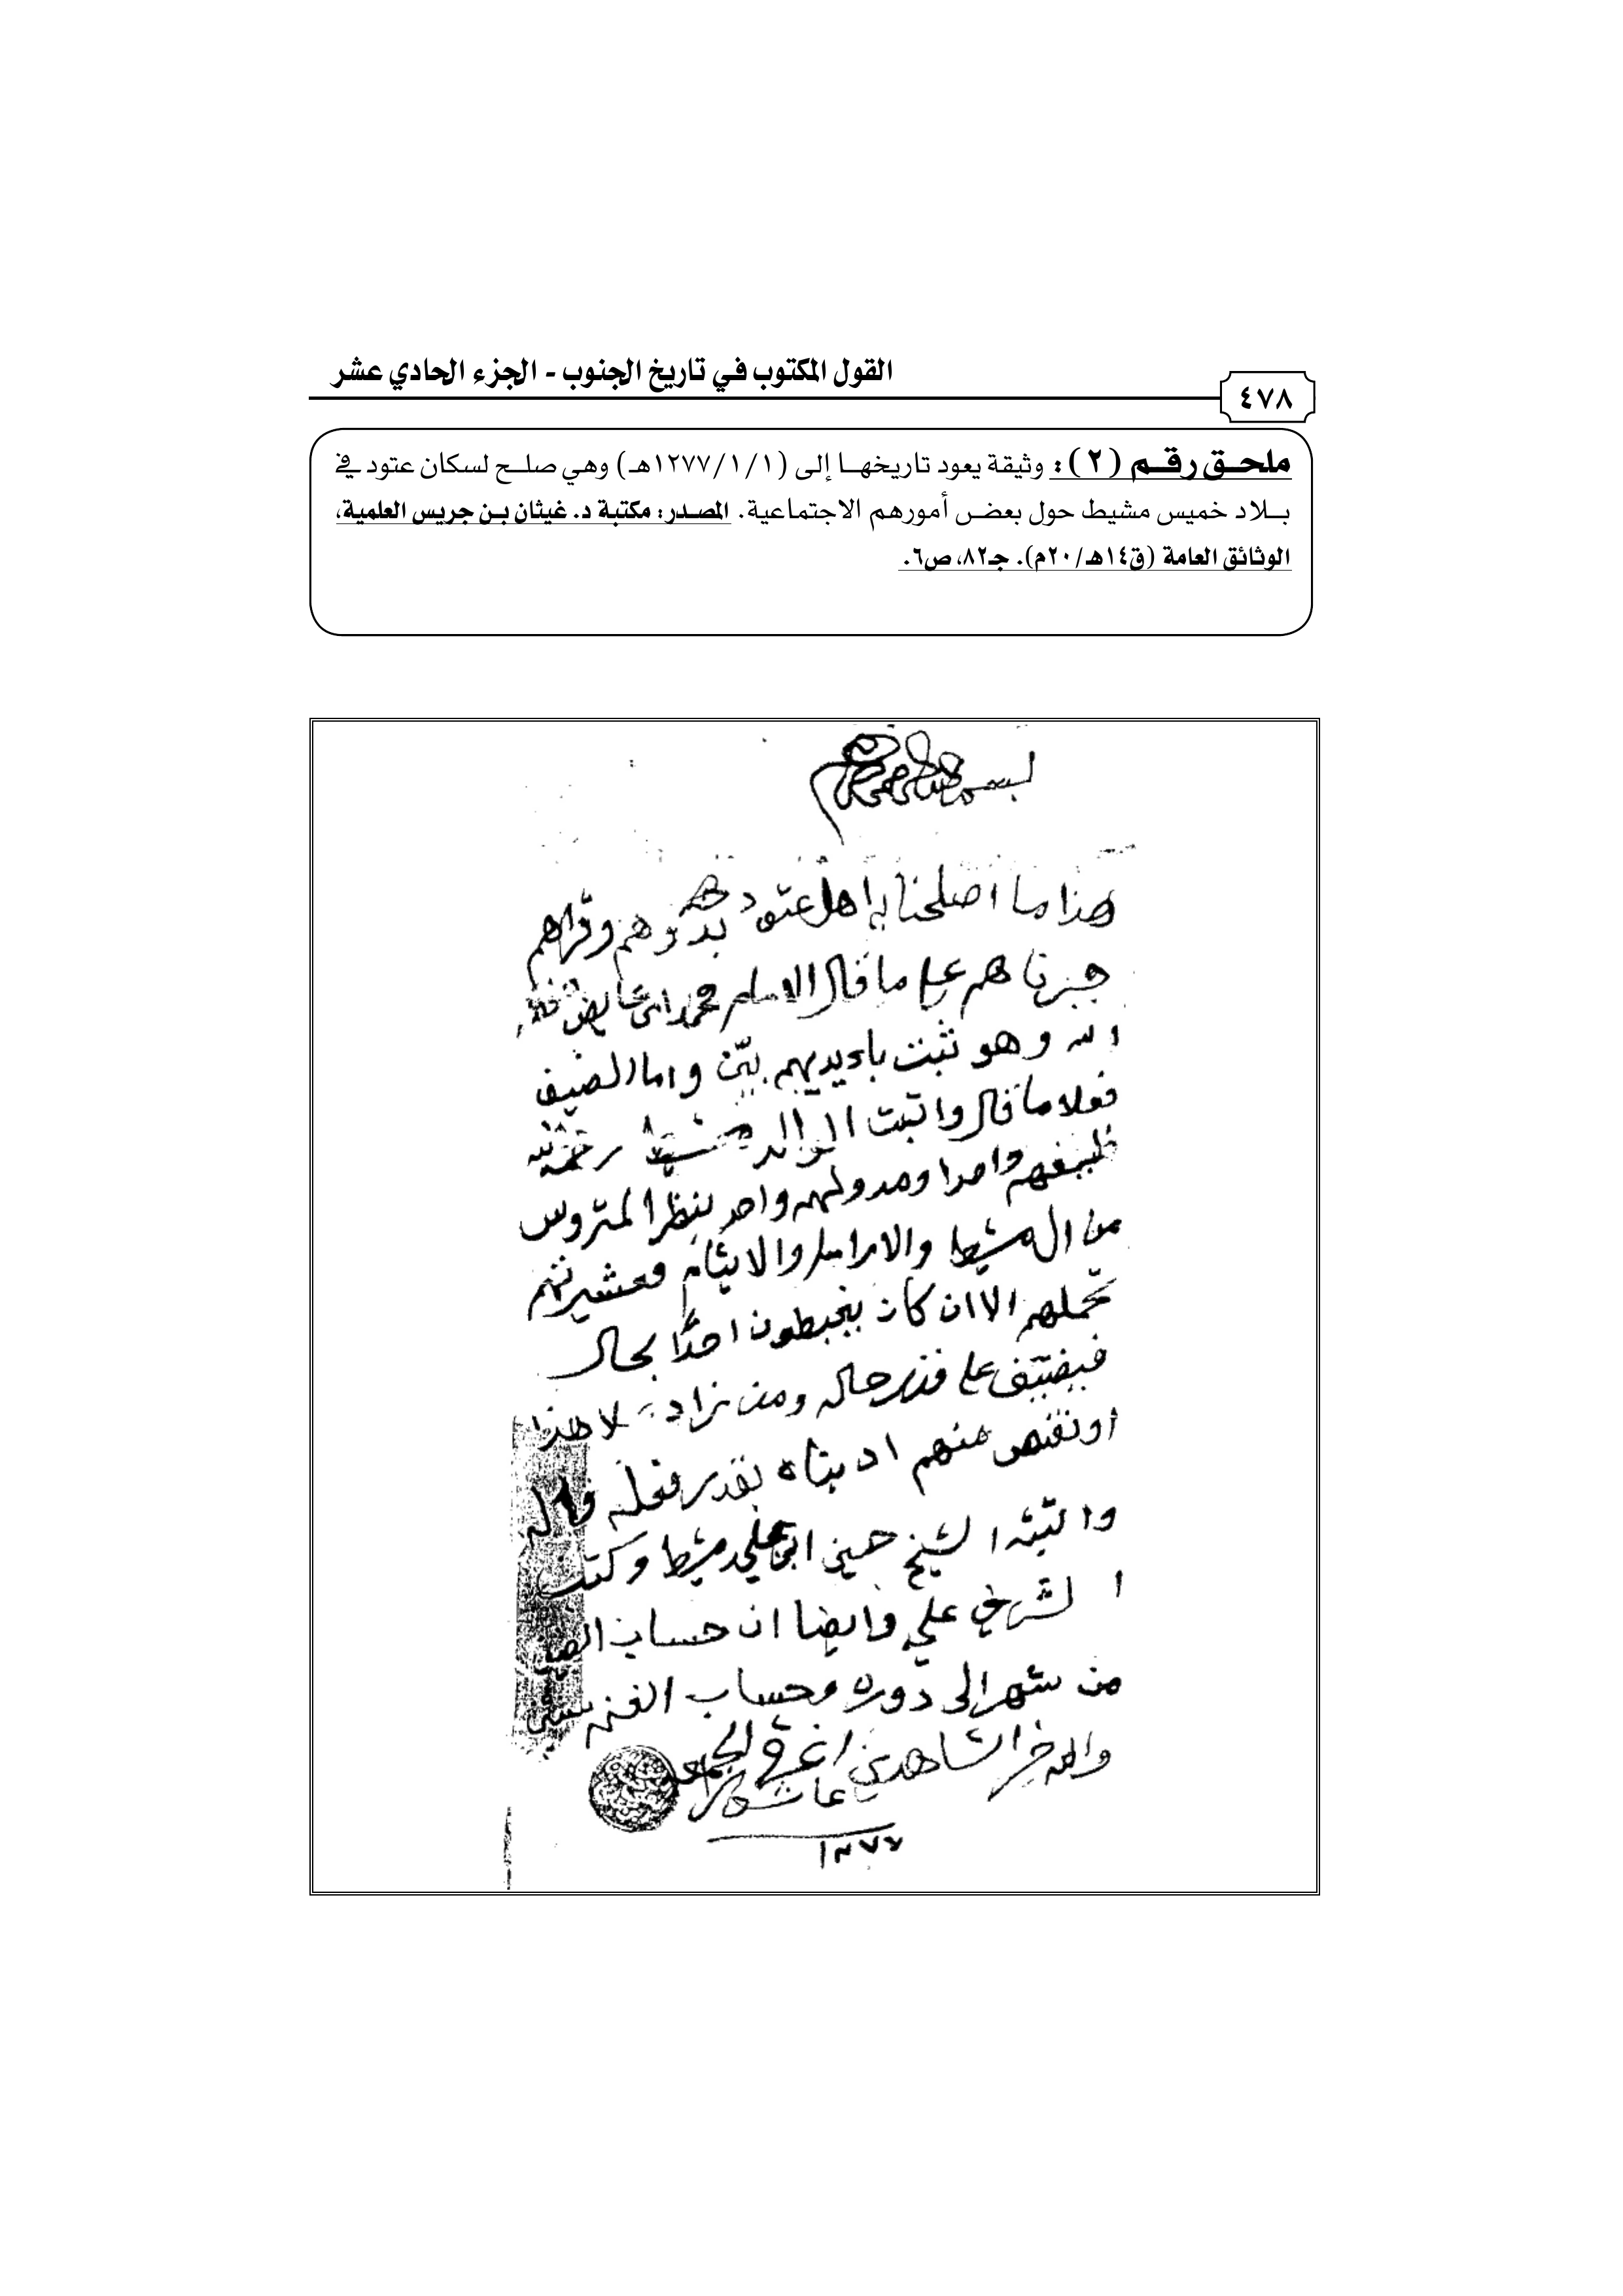 القول المكتوب في تاريخ الجنوب - الجزء الحادي عشر
٤٧٨
ملحق رقم (٢): وثيقة يعود تاريخها إلى (١٢٧٧/١/١هـ) وهي صلح لسكان عتود في
بلاد خميس مشيط حول بعض أمورهم الاجتماعية. المصدر: مكتبة د. غيثان بن جريس العلمية،
الوثائق العامة (ق١٤هـ/٢٠م). جـ٨٢، ص٦.
بسم الله الرحمن الرحيم
هذا ما اصلحنا به اهل عتود بدوهم وقراهم
جبرناهم على ما قال محمد ابن عايض
الله وهو ثبت باءيديهم بيّن واما الضيف
فعلا ما قال واثبت الوالد مشيط رحمة الله
واحدا ومدولهم واحد لنظر المتروس
من ال مشيط والارامل والايتام وعشيرتهم
تحملهم الا ان كان احدًا بحال
فيضيّف على قدر حاله ومن زاد علا هذا
او نقص منهم ادبناه بقدر فعله
واثبته الشيخ حسين ابن علي مشيط وكتب
الشريف علي وايضا ان حساب
من شهر الى دوره وحساب الغنم
والله خير الشاهدين
١٢٧٧